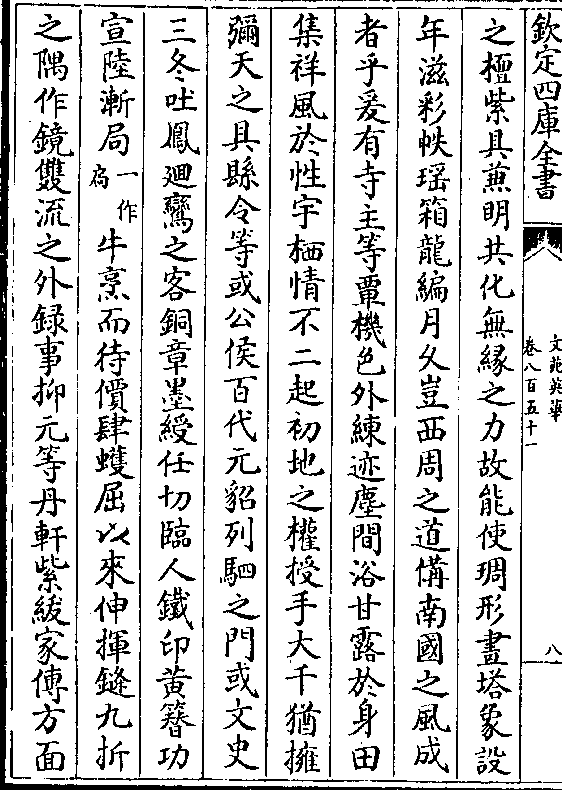 欽定四庫全書
文苑英華
卷八百五十一
八
之檀紫具熏明共化無緣之力故能使琱形畫塔象設
年滋彩帙瑶箱龍編月久豈西周之道備南國之風成
者乎爰有寺主等覃機色外練迹塵間浴甘露於身田
集祥風於性宇栖情不二起初地之權授手大千猶擁
彌天之具縣令等或公侯百代元貂列駟之門或文史
三冬吐鳳迴鸞之客銅章墨綬任切臨人鐵印黄簪功
宣陸漸局一作扃牛烹而待價肆蠖屈以來伸揮鏠九折
之隅作鏡雙流之外録事抑元等丹軒紫紱家傳方面